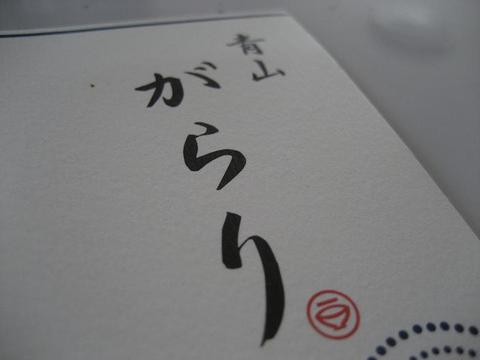 青山
がらり